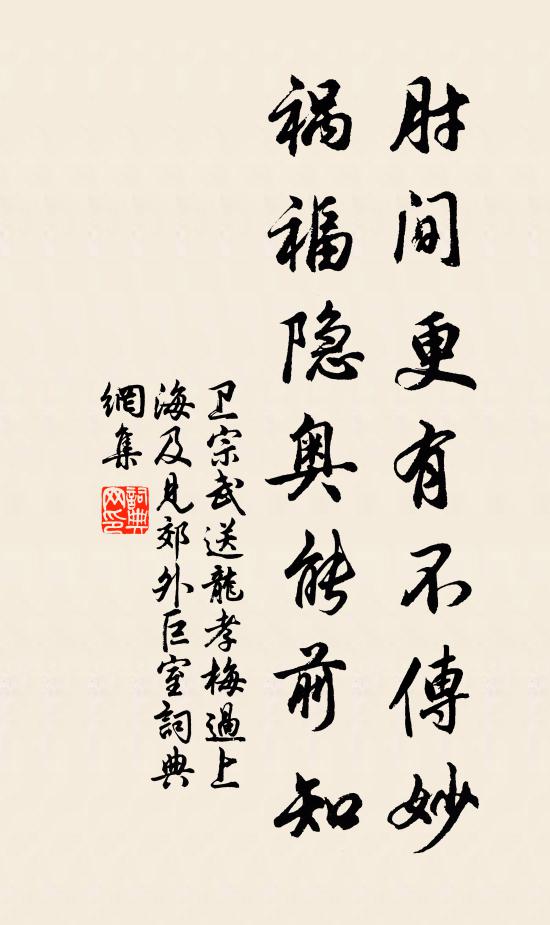 肘间更有不傳妙
祸福隐奥能前知
卫宗武送龍孝梅過上
海及見郊外巨室詞典
網集
詞典
网印